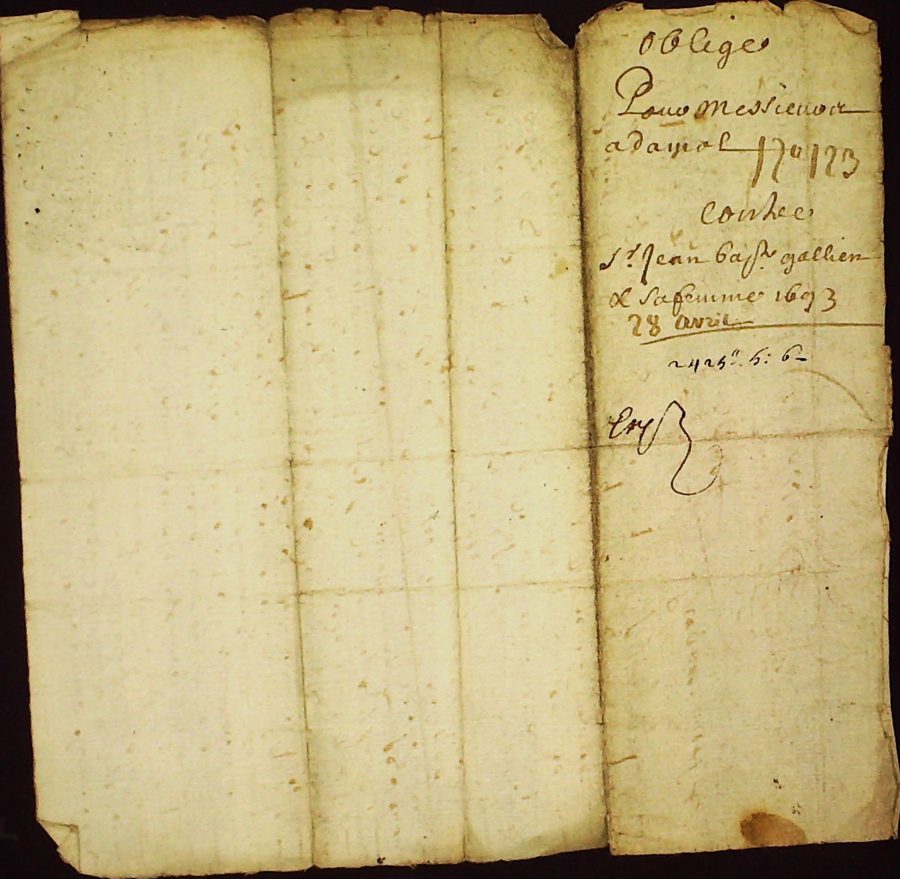 Oblige
Pour Messieurs
adamol 17 123
Contre
Sr. Jean bapt gallien
& sa femme 1693
28 avril
2425ll. 5: 6